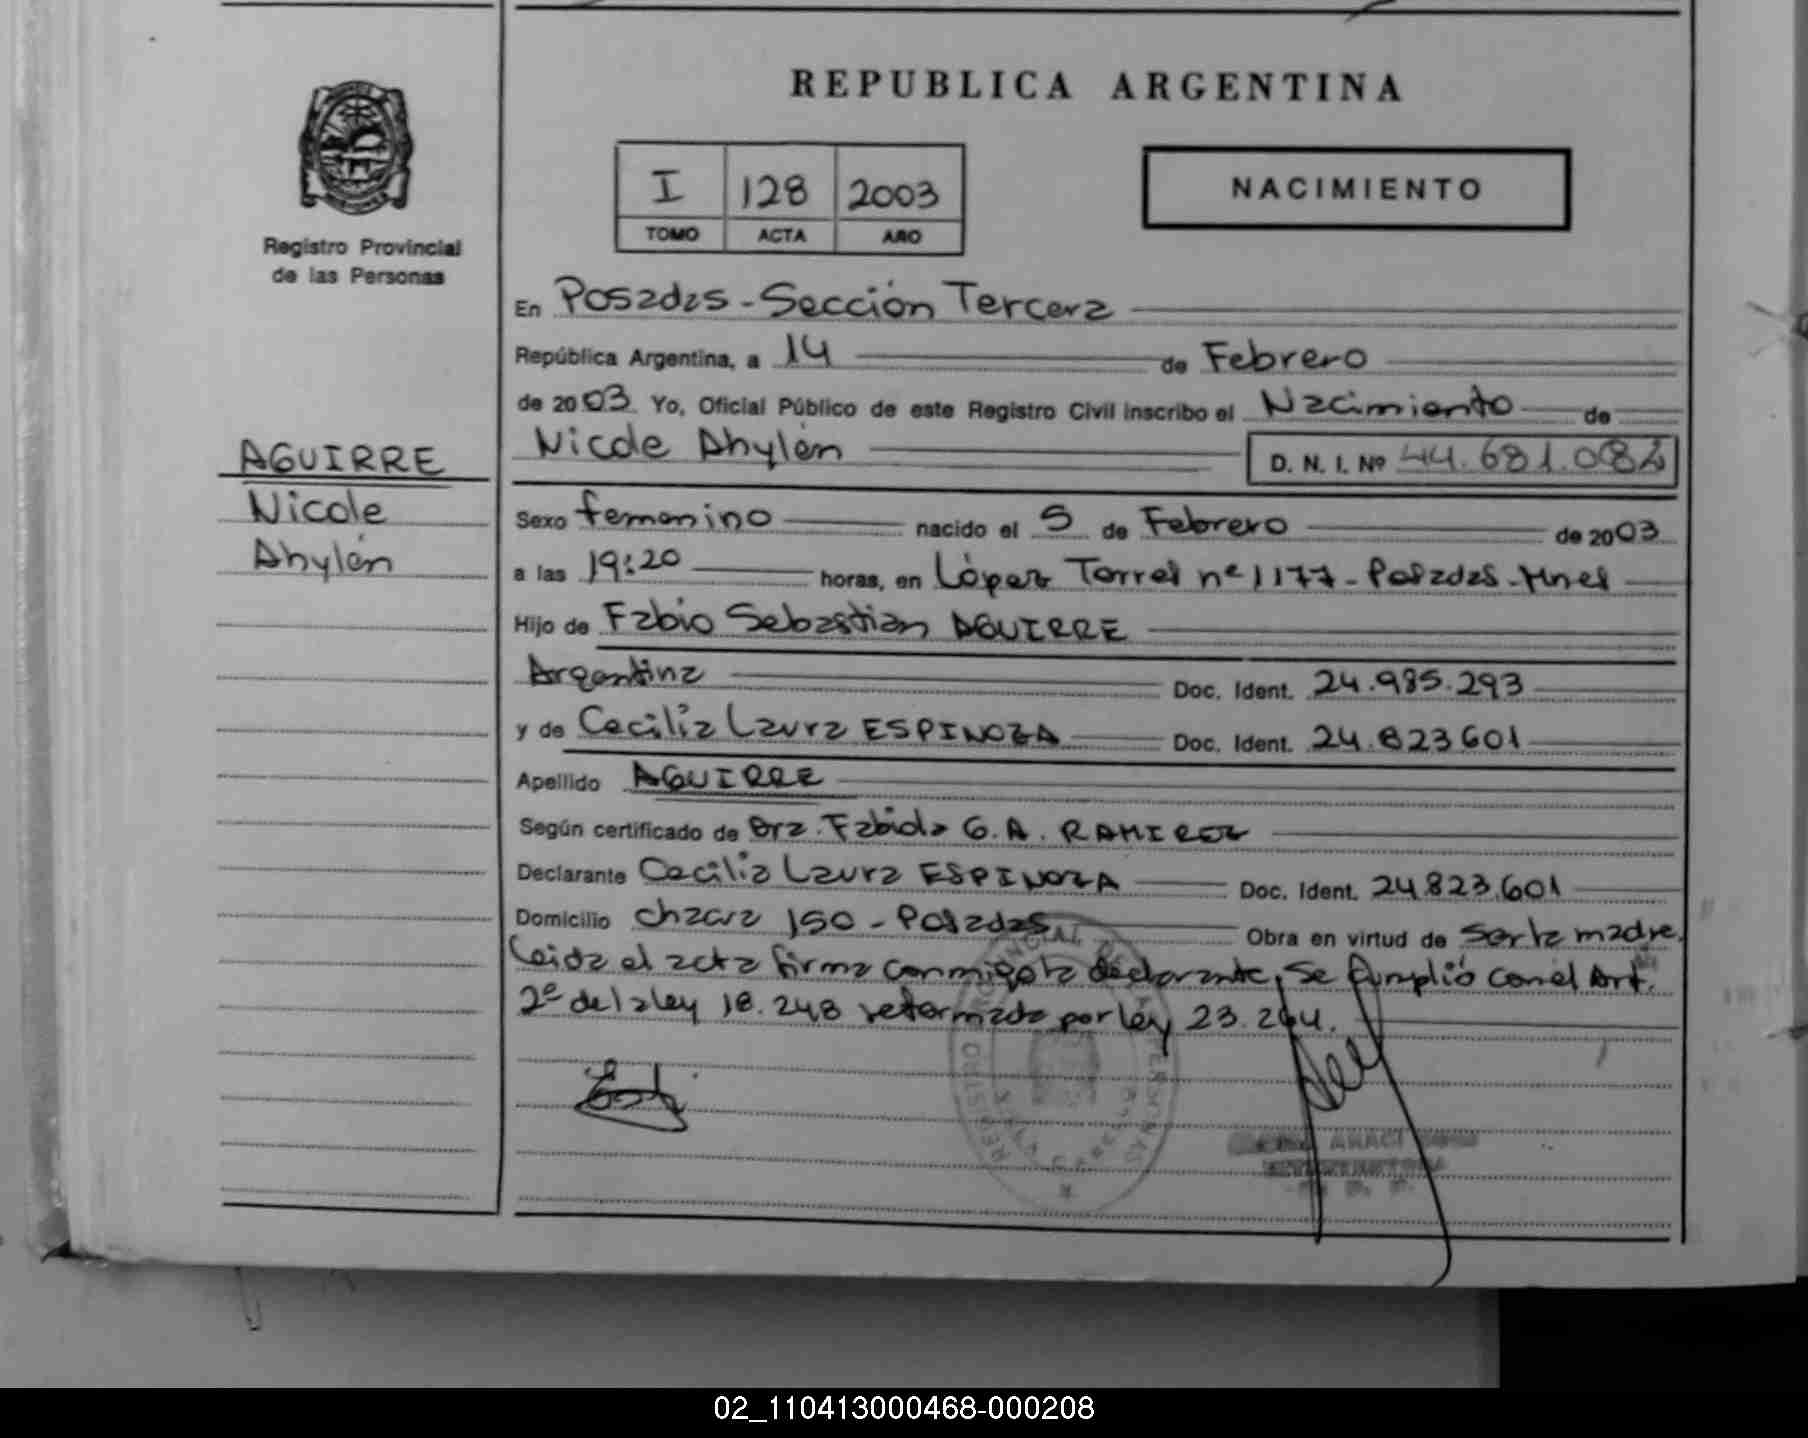 REPUBLICA ARGENTINA
I 128 2003
TOMO ACTA AÑO
NACIMIENTO
Registro Provincial
de las Personas
En Posadas - Sección Tercera
República Argentina, a 14 de Febrero
de 2003 Yo, Oficial Público de este Registro Civil inscribo el Nacimiento de
Nicole Ahylén D. N. I. Nº 44.681.082
AGUIRRE
Nicole
Ahylén
Sexo femenino nacido el 5 de Febrero de 2003
a las 19:20 horas, en López Torres nº 1177 - Posadas - Mnes
Hijo de Fabio Sebastian AGUIRRE
Argentina Doc. Ident. 24.985.293
y de Cecilia Laura ESPINOZA Doc. Ident. 24.823601
Apellido AGUIRRE
Según certificado de Dra. Fabiola G. A. RAMIREZ
Declarante Cecilia Laura ESPINOZA Doc. Ident. 24.823.601
Domicilio chacra 150 - Posadas Obra en virtud de ser la madre.
Leida el acta firma conmigo la declarante, Se cumplió con el Art.
2º de la ley 18.248 reformada por ley 23.264.
02_110413000468-000208